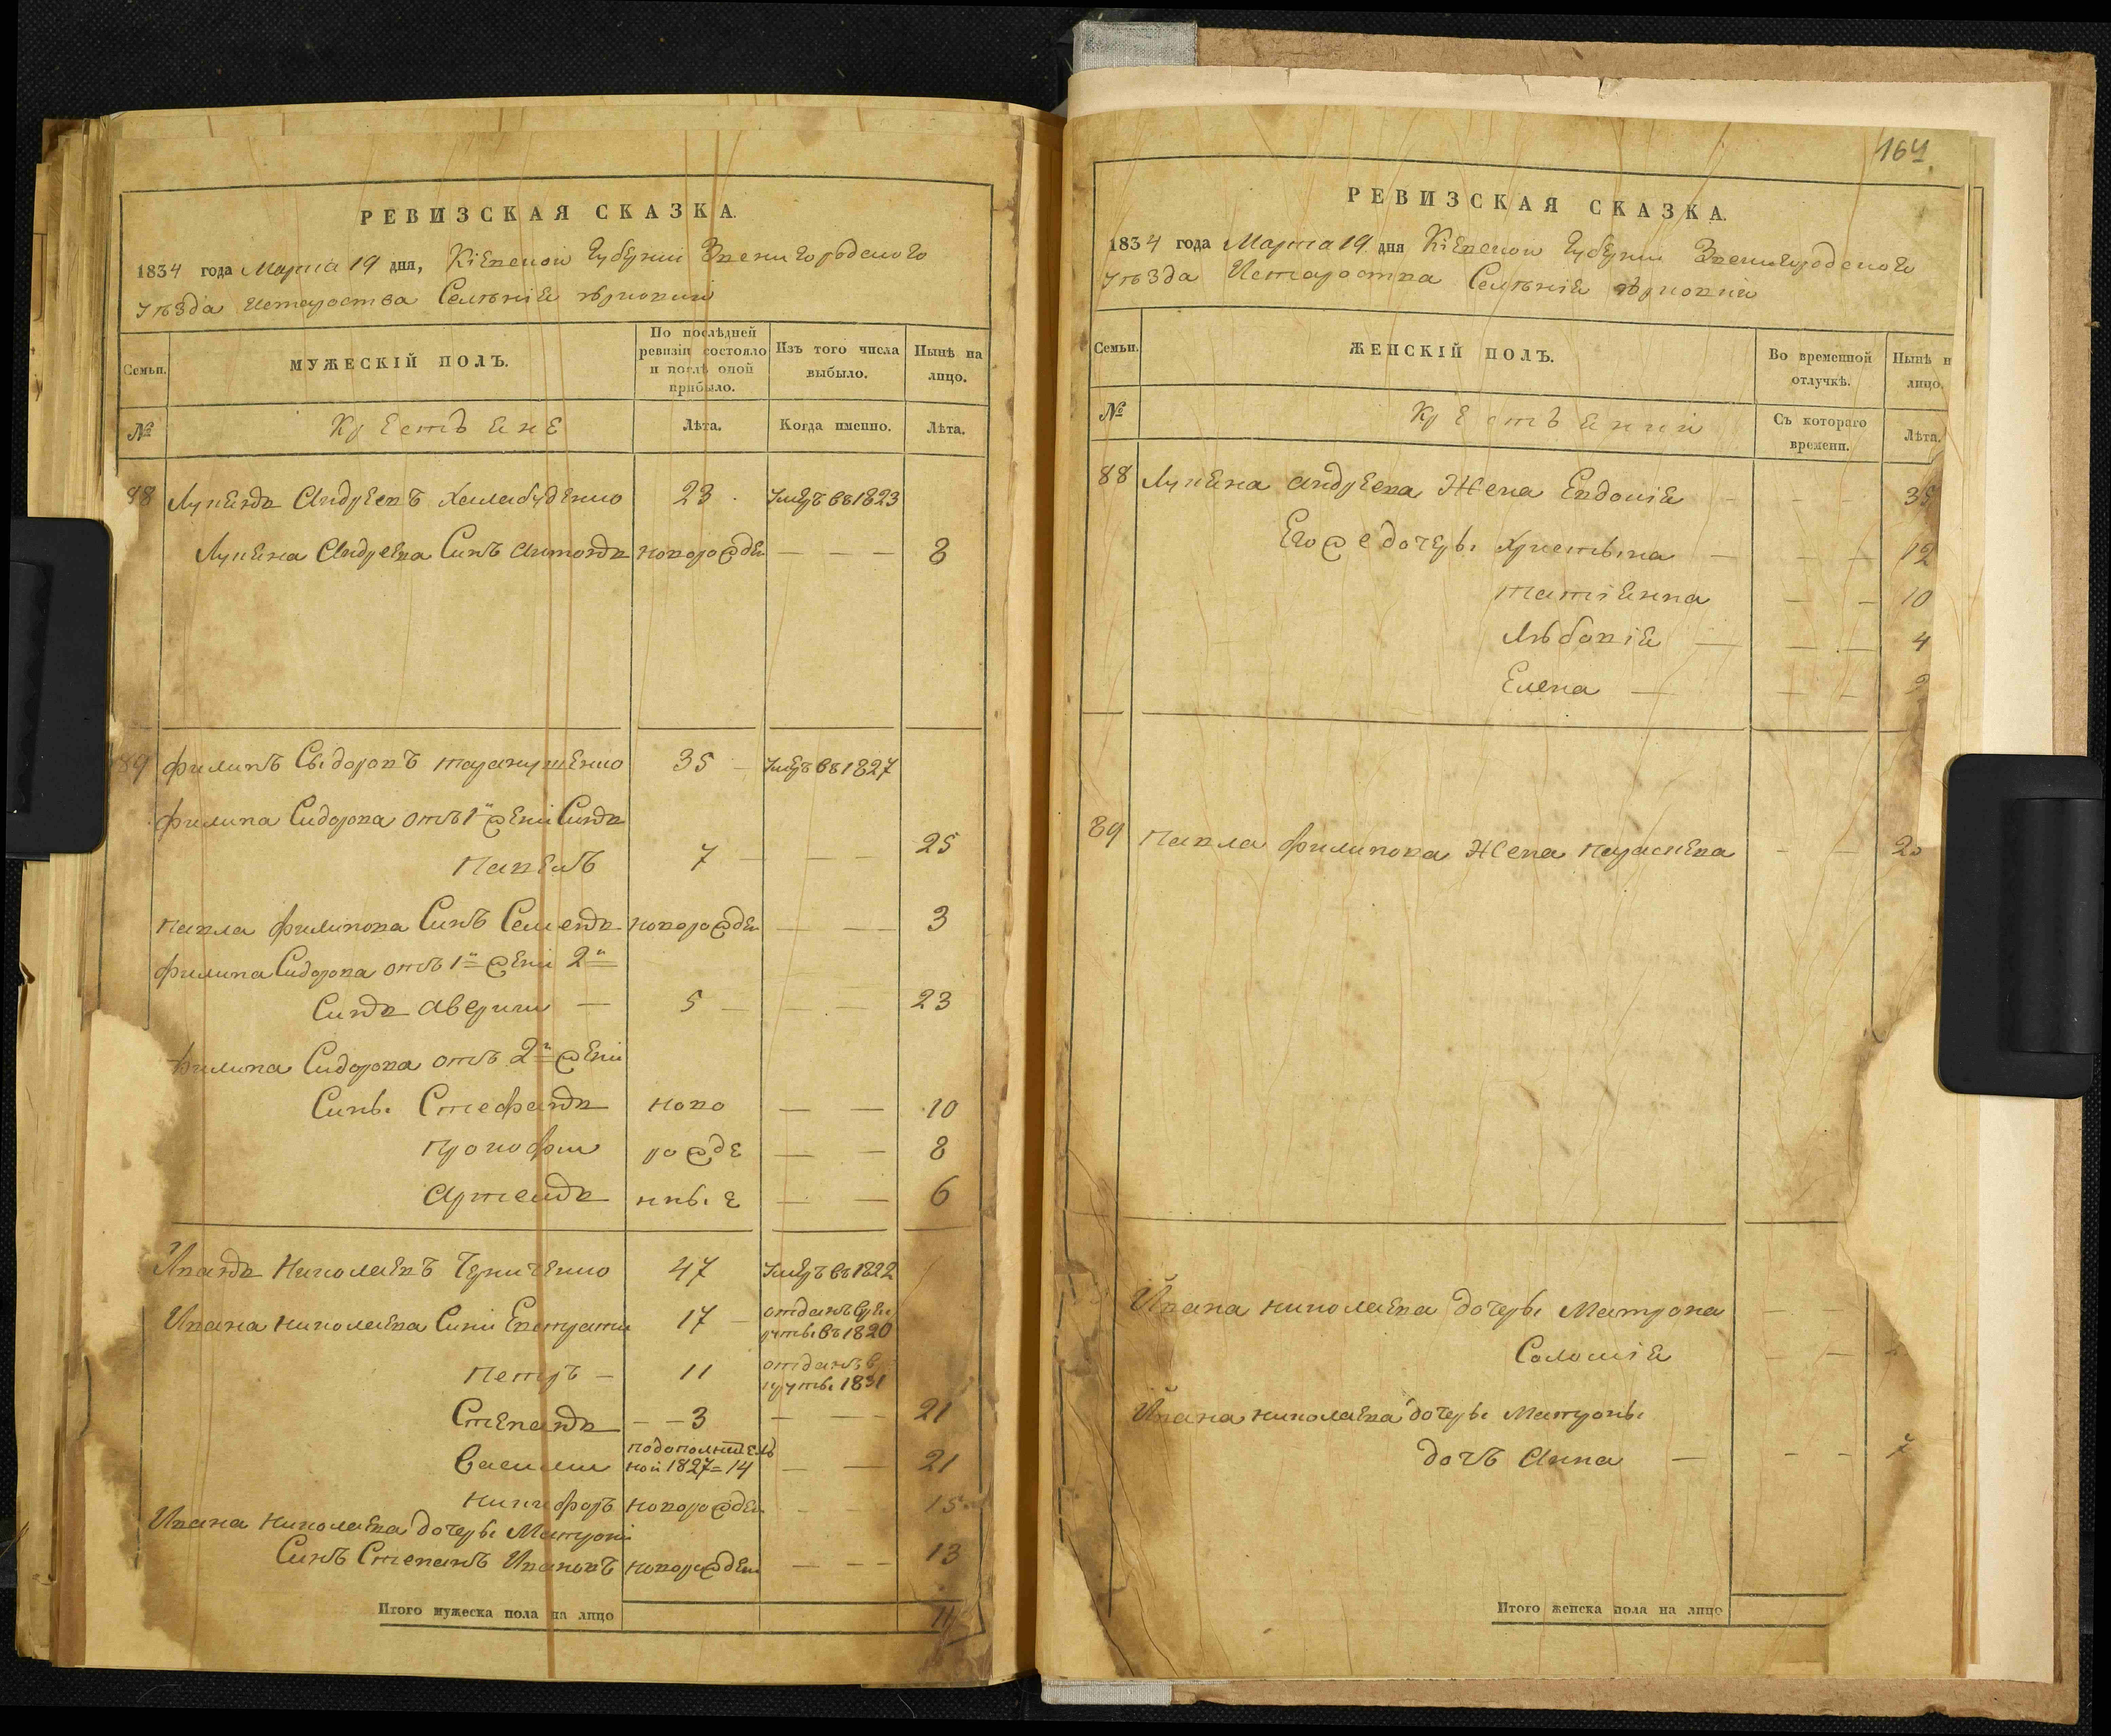 РЕВИЗСКАЯ СКАЗКА.
1834 года Марта 19 дня, Кіевской Губерніи Звенигородского
уѣзда Староства Селѣніе
Семьи.
МУЖЕСКІЙ ПОЛЪ.
По послѣдней ревизіи состояло и послѣ оной прибыло.
Изъ того числа выбыло.
Нынѣ на лицо.
№
Крестьене
Лѣта.
Когда именно.
Лѣта.
88 Лукьянъ Андреевъ 23 Умеръ въ 1823
Лукьяна Андреева Синъ Антонъ новорожден — — — 8
89 Филипъ Сыдоровъ 35 — Умеръ въ 1827
Филипа Сидорова отъ 1й жени Синъ
Павелъ 7 — — 25
Павла Филипова Синъ Семенъ новорожден — — — 3
Филипа Сидорова отъ 1й жени 2й
Синъ Аверкии — 5 — — — 23
Филипа Сидорова отъ 2й жени
Сины Стефанъ ново — — 10
Прокофии рожде — — 8
Артемъ нные — — 6
Иванъ Николаевъ Черниченко 47 Умеръ въ 1822
Ивана Николаева Сини Евстратии 17 — отданъ в рек
руты въ 1820
Петръ — 11 отданъ в р
круты 1831
Степанъ — — 3 — — — 21
Василии по дополнител
ной 1827 = 14 — — 21
Никифоръ новорожден — — 15
Ивана Николаева дочеры Матрони
Синъ Степанъ Ивановъ новорожден — — — 13
Итого мужеска пола на лицо 11
164
РЕВИЗСКАЯ СКАЗКА.
1834 года Марта 19 дня Кіевской Губерніи Звенигородского
уѣзда Староства Селѣніе
Семьи.
ЖЕНСКІЙ ПОЛЪ.
Во временной отлучкѣ.
Нынѣ н лицо.
№
Крестьенки
Съ котораго времени.
Лѣта.
88 Лукьяна Андреева Жена Евдокія — — — 35
Его же дочеры Христына — — — 12
Татіенна — — 10
— — — 4
Елена — — —
89 Павла Филипова Жена Параскева — —
Ивана Николаева дочеры Матрона — —
Соломія — —
Ивана Николаева дочеры Матроны
дочъ Анна — — — 7
Итого женска пола на лицо